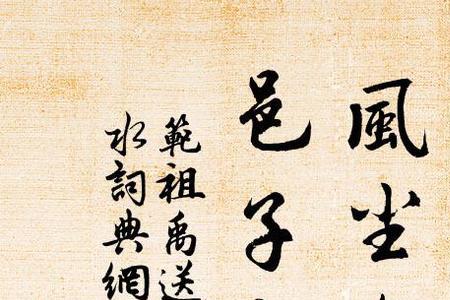 風尘
邑子
範祖禹送
水詞典網